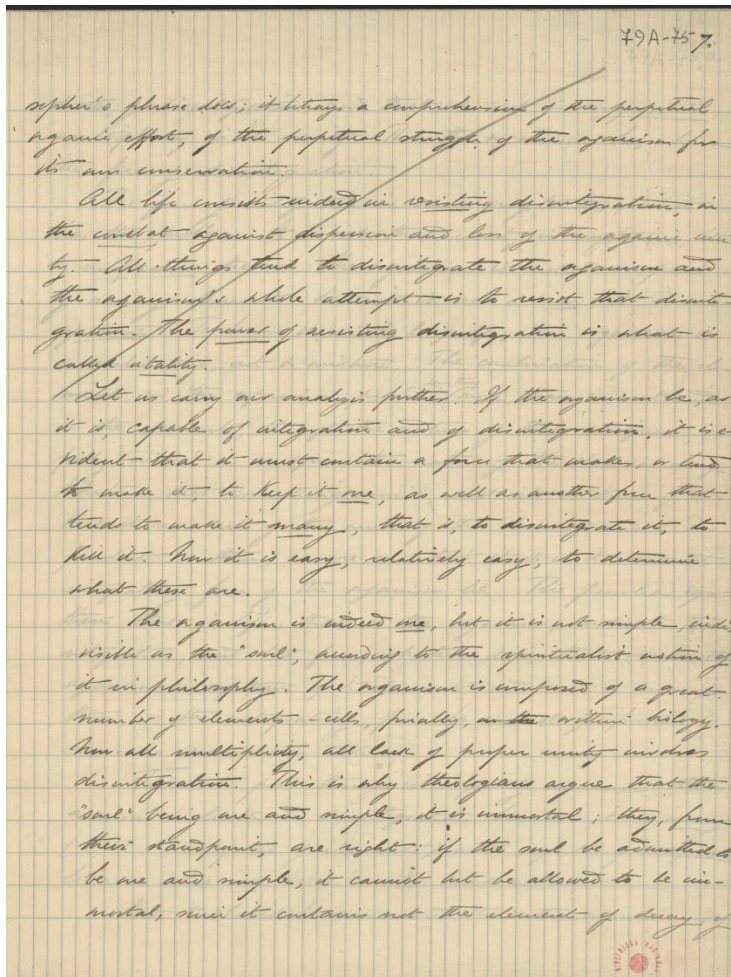 79A-75 7.
sopher's phrase does; it betrays a comprehension of the perpetual
organic effort, of the perpetual struggle of the organism for
its own conservation.
All life consists indeed in resisting disintegration, in
the combat against dispersion and loss of the organic uni-
ty. All things tend to disintegrate the organism and
the organism's whole attempt is to resist that disinte-
gration. The power of resisting disintegration is what is
called vitality.
Let us carry our analysis further. If the organism be, as
it is, capable of integration and of disintegration, it is e-
vident that it must contain a force that makes, or tend
to make it, to keep it one, as well as another force that
tends to make it many, that is, to disintegrate it, to
kill it. Now it is easy, relatively easy, to determine
what these are.
The organism is indeed one, but it is not simple, indi-
visible as the "soul", according to the spiritualist notion of
it in philosophy. The organism is composed of a great
number of elements - cells, finally, on the within biology.
Now all multiplicity, all lack of proper unity involves
disintegration. This is why theologians argue that the
"soul" being one and simple, it is immortal; they, from
their standpoint, are right: if the soul be admitted to
be one and simple, it cannot but be allowed to be im-
mortal, since it contains not the element of decay, of